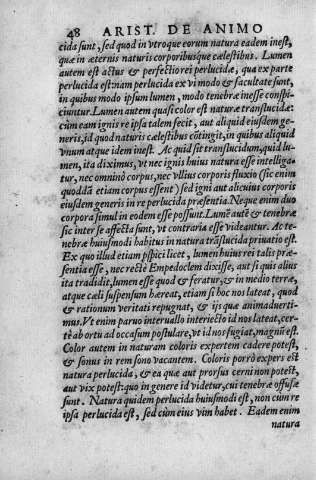 48 ARIST. DE ANIMO
cida sunt, sed quod in vtroque eorum natura eadem inest,
quæ in æternis naturis corporibusque cælestibus. Lumen
autem est actus & perfectio rei perlucidæ, qua ex parte
perlucida est: nam perlucida ex vi modo & facultate sunt,
in quibus modo ipsum lumen, modo tenebræ inesse conspi-
ciuntur. Lumen autem quasi color est naturæ translucidæ:
cùm eam ignis re ipsa talem fecit, aut aliquid eiusdem ge-
neris, id quod naturis cælestibus cōtingit, in quibus aliquid
vnum atque idem inest. Ac quid sit translucidum, quid lu-
men, ita diximus, vt nec ignis huius natura esse intelliga-
tur, nec omninò corpus, nec vllius corporis fluxio (sic enim
quoddā etiam corpus essent) sed igni aut alicuius corporis
eiusdem generis in re perlucida præsentia. Neque enim duo
corpora simul in eodem esse possunt. Lumē autē & tenebræ
sic inter se affecta sunt, vt contraria esse videantur. Ac te-
nebræ huiusmodi habitus in natura trāslucida priuatio est.
Ex quo illud etiam pspici licet, lumen huius rei talis præ-
sentia esse, nec rectè Empedoclem dixisse, aut si quis alius
ita tradidit, lumen esse quod & feratur, & in medio terræ,
atque cæli suspensum hæreat, etiam si hoc nos lateat, quod
& rationum veritati repugnat, & ijs quæ animaduerti-
mus. Vt enim paruo interuallo interiecto id nos lateat, cer-
tè ab ortu ad occasum postulare, vt id nos fugiat, magnū est.
Color autem in naturam coloris expertem cadere potest,
& sonus in rem sono vacantem. Coloris porrò expers est
natura perlucida, & ea quæ aut prorsus cerni non potest,
aut vix potest: quo in genere id videtur, cui tenebræ offusæ
sunt. Natura quidem perlucida huiusmodi est, non cùm re
ipsa perlucida est, sed cùm eius vim habet. Eadem enim
natura